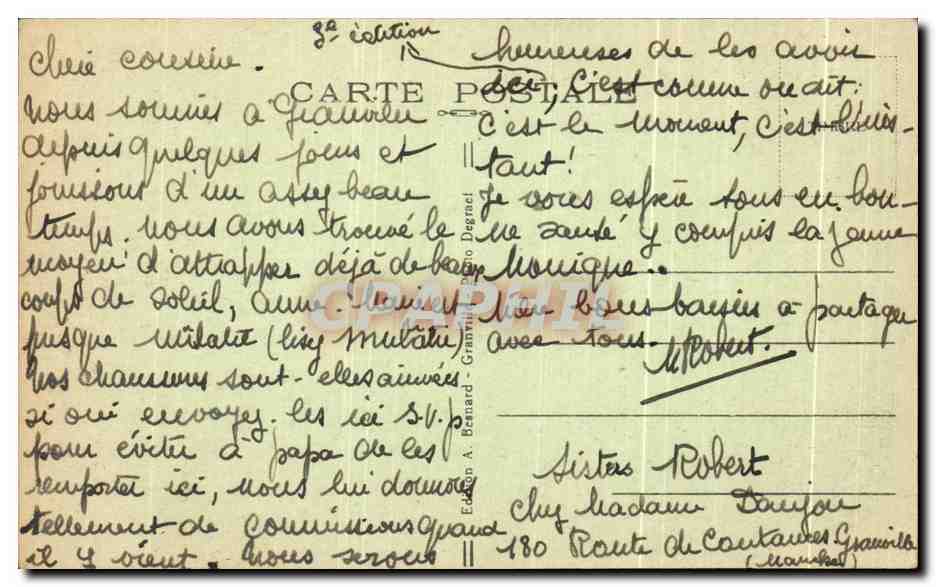 3e édition
Chère cousine.
Nous sommes à Granville
depuis quelques jours et
jouissons d'un assez beau
temps. Nous avons trouvé le
moyen d'attrapper déjà de beaux
coups de soleil, Anne-Marie est
presque mûlatre (lisez Mulâtre)
Nos chaussures sont-elles arrivées
si oui envoyez-les ici S.V.P
pour éviter à papa de les
remporter ici, nous lui donnons
tellement de commissions quand
il y vient. Nous serons
heureuses de les avoir
ici, c'est comme on dit:
C'est le moment, c'est l'ins-
tant!
Je vous espère tous en bon-
ne santé y compris la jeune
Monique..
bons baisers à partager
avec tous.
M Robert.
CARTE POSTALE
CPAPHIL
Edition A. Besnard - Granville - Photo Degraet
Sisters Robert
chez Madame Danjou
180 Route de Coutances Granville
(Manche)